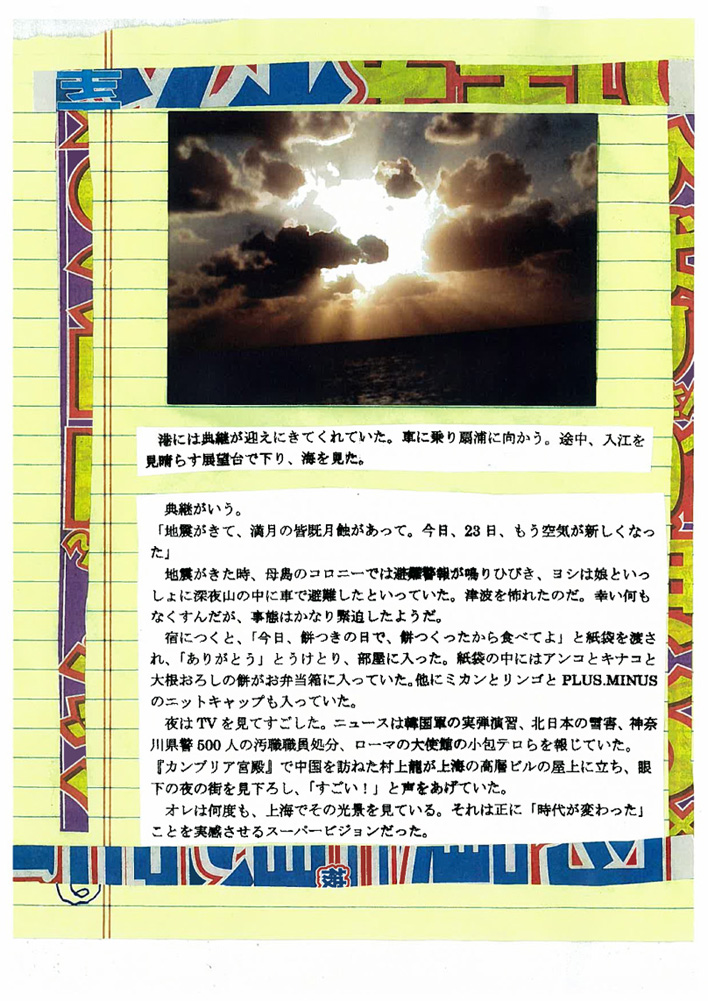 港には典継が迎えにきてくれていた。車に乗り扇浦に向かう。途中、入江を
見晴らす展望台で下り、海を見た。
典継がいう。
「地震がきて、満月の皆既月蝕があって。今日、23日、もう空気が新しくなっ
た」
地震がきた時、母島のコロニーでは避難警報が鳴りひびき、ヨシは娘といっ
しょに深夜山の中に車で避難したといっていた。津波を怖れたのだ。幸い何も
なくすんだが、事態はかなり緊迫したようだ。
宿につくと、「今日、餅つきの日で、餅つくったから食べてよ」と紙袋を渡さ
れ、「ありがとう」とうけとり、部屋に入った。紙袋の中にはアンコとキナコと
大根おろしの餅がお弁当箱に入っていた。他にミカンとリンゴと PLUS.MINUS
のニットキャップも入っていた。
夜は TV を見てすごした。ニュースは韓国軍の実弾演習、北日本の雪害、神奈
川県警 500 人の汚職職員処分、ローマの大使館の小包テロらを報じていた。
『カンブリア宮殿』で中国を訪ねた村上龍が上海の高層ビルの屋上に立ち、眼
下の夜の街を見下ろし、「すごい！」と声をあげていた。
オレは何度も、上海でその光景を見ている。それは正に「時代が変わった」
ことを実感させるスーパービジョンだった。